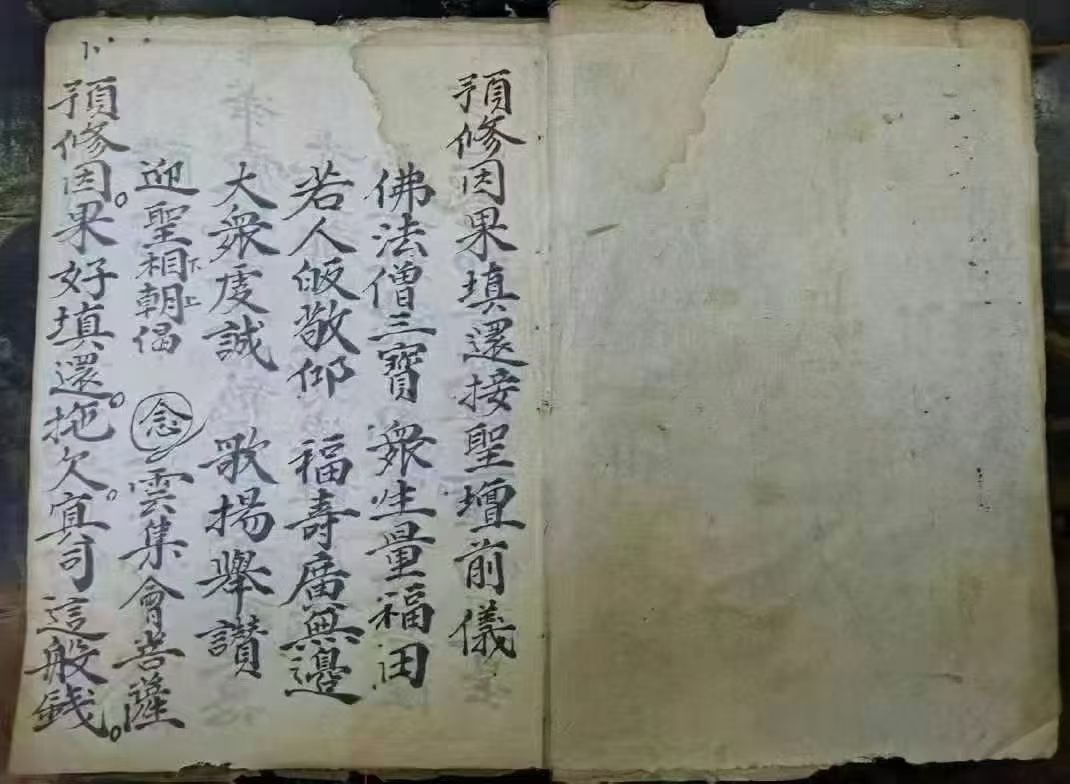 預修因果填還接聖壇前儀
佛法僧三寶 衆生量福田
若人皈敬仰 福壽廣無邊
大衆虔誠 歌揚舉讚
迎聖相下朝上偈 念 雲集會菩薩
預修因。果好填還。拖欠。㝠司這般錢。